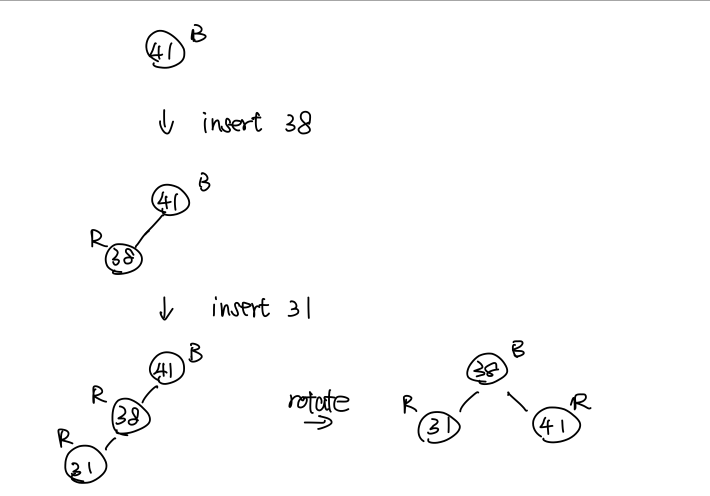 41 B
↓ insert 38
41 B
R 38
↓ insert 31
41 B
R 38
R 31
rotate →
38 B
R 31
41 R